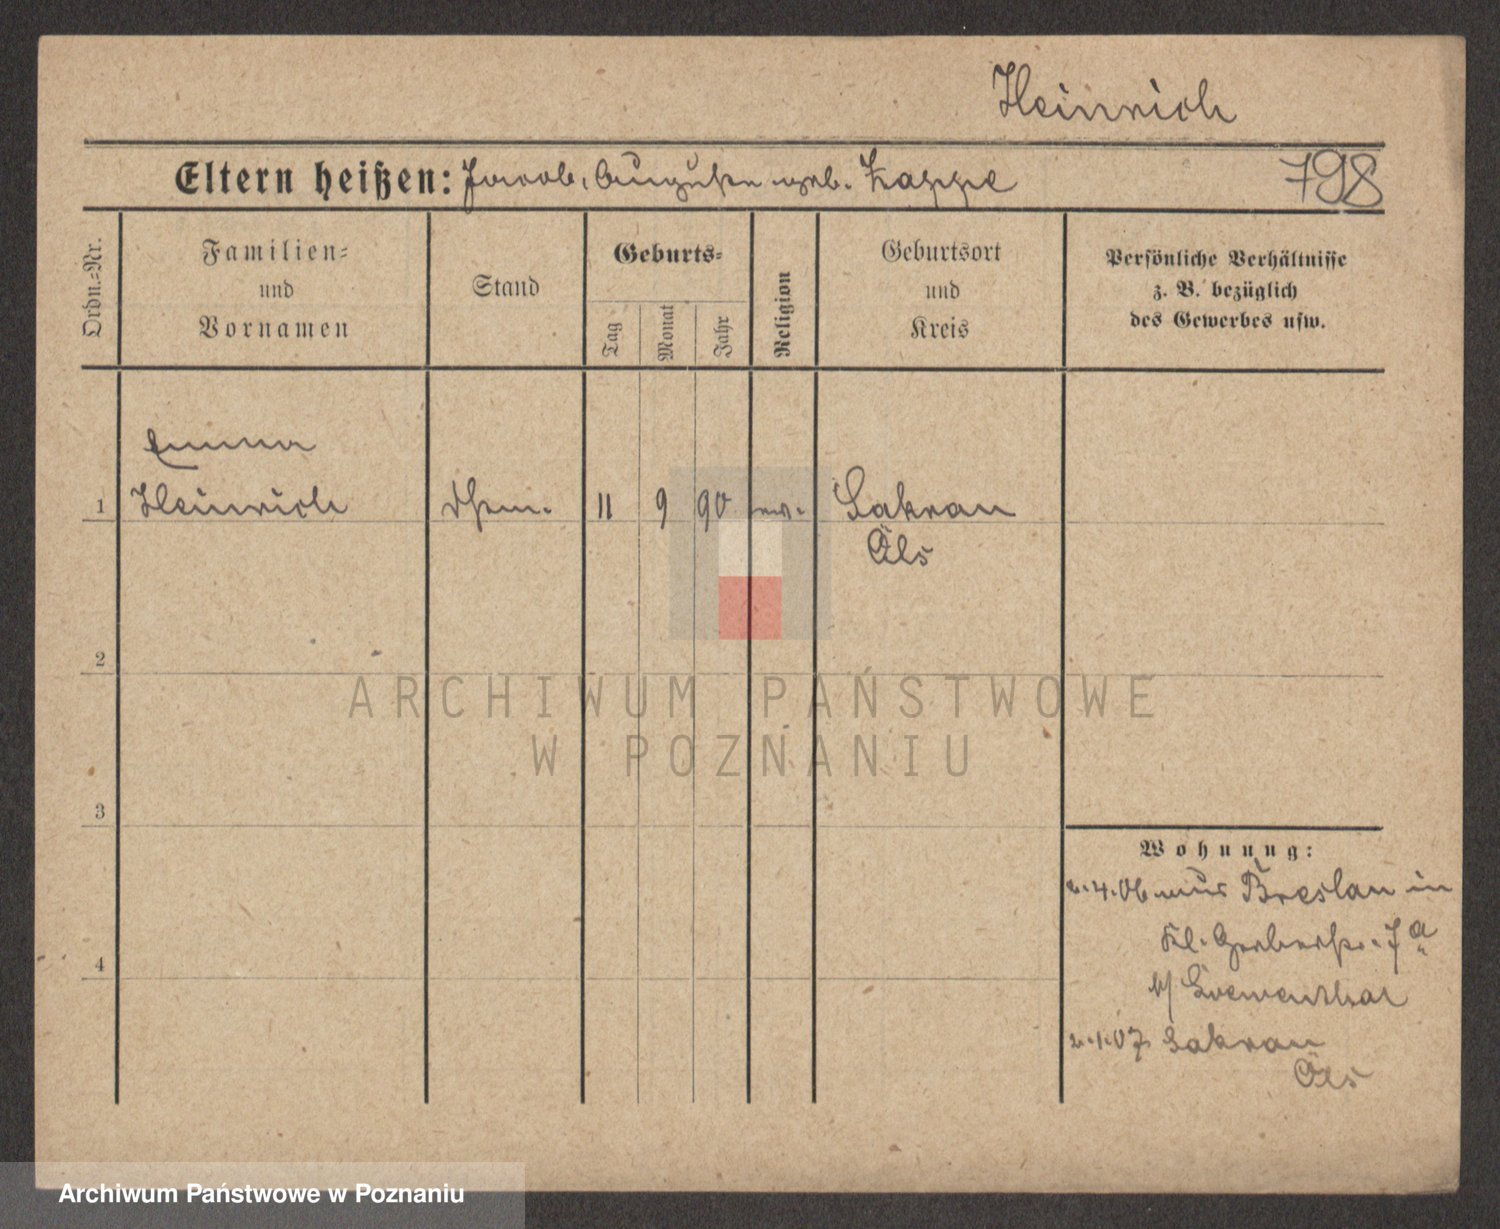 Heinrich
Eltern heißen: Jacob, Auguste geb. Kappe
798
Ordn.-Nr.
Familien-
und
Vornamen
Stand
Geburts-
Tag
Monat
Jahr
Religion
Geburtsort
und
Kreis
Persönliche Verhältnisse
z. B. bezüglich
des Gewerbes usw.
Emma
1 Heinrich 11 9 90 ev. Sakrau
Öls
2
3
4
Wohnung:
2.4.06 aus Breslau in
Kl. Gerberstr. 7a
b/ Loewenthal
2.1.07 Sakrau
Öls
ARCHIWUM PAŃSTWOWE
W POZNANIU
Archiwum Państwowe w Poznaniu